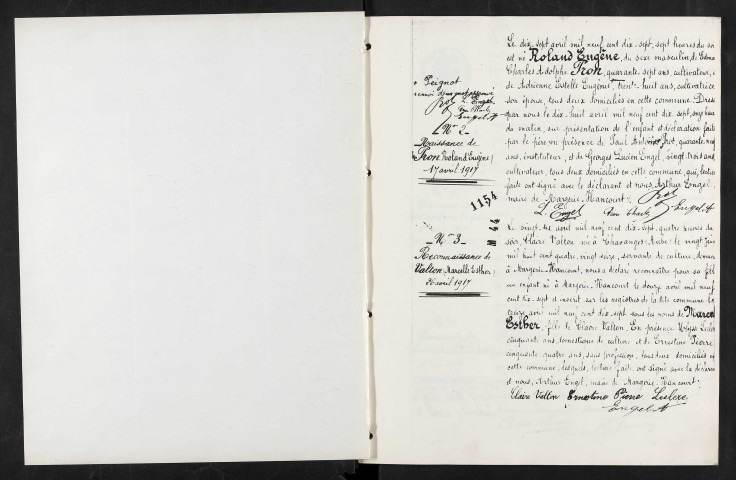 Peignot
Engel A
N° 2
Naissance de
Pron (Roland Eugène)
17 avril 1917
1154
N° 3
Reconnaissance de
Valton (Marcelle Esther)
26 avril 1917
Le dix-sept avril mil neuf cent dix-sept, sept heures du
est né Roland Eugène, du sexe masculin de
Charles Adolphe Pron, quarante-sept ans, cultivateur,
de Adrienne Estelle Eugénie, trente-huit ans, cultivatrice
son épouse, tous deux domiciliés en cette commune. Dressé
par nous le dix-huit avril mil neuf cent dix-sept, onze heures
du matin, sur présentation de l'enfant et déclaration faite
par le père, en présence de Paul Antoine Prot, quarante-neuf
ans, instituteur, et de Georges Lucien Engel, vingt-trois ans,
cultivateur, tous deux domiciliés en cette commune, qui, lecture
faite ont signé avec le déclarant et nous, Arthur Engel,
maire de Margerie-Hancourt.
Prot
L. Engel Pron Charles Engel A
Le vingt-six avril mil neuf cent dix-sept, quatre heures du
soir, Claire Valton née à Chavanges (Aube) le vingt juin
mil huit cent quatre-vingt-seize, servante de culture,
à Margerie-Hancourt, nous a déclaré reconnaître pour sa fille
un enfant né à Margerie-Hancourt le douze avril mil neuf
cent dix-sept et inscrit sur les registres de la dite commune le
treize avril mil neuf cent dix-sept sous les noms de Marcelle
Esther, fille de Claire Valton. En présence
cinquante ans, domestique de culture et de Ernestine Pierre,
cinquante-quatre ans, sans profession, tous deux domiciliés en
cette commune, lesquels, lecture faite, ont signé avec la déclarante
et nous, Arthur Engel, maire de Margerie-Hancourt.
Claire Valton Ernestine Pierre
Engel A